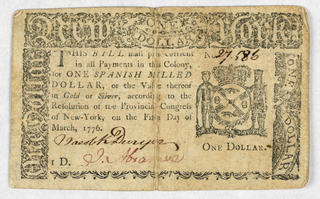 New York
ONE
DOLLAR
THIS BILL shall pass current
in all Payments in this Colony,
for ONE SPANISH MILLED
DOLLAR, or the Value thereof
in Gold or Silver, according to the
Resolution of the Provincial Congress
of New-York, on the First Day of
March, 1776.
No. 27,586
ONE DOLLAR.
1 D.
ONE DOLLAR